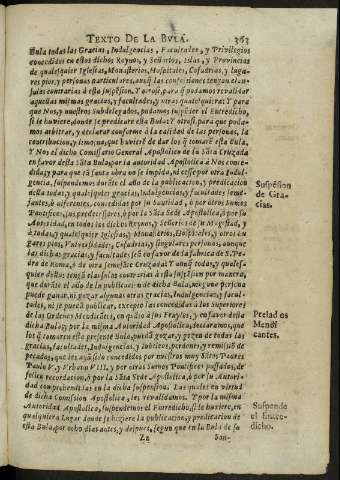 TEXTO DE LA BVLA. 363
Bula todas las Gracias, Indulgencias, Facultades, y Privilegios
concedidos en estos dichos Reynos, y Señorios, Islas, y Provincias
de qualesquier Iglesias, Monasterios, Hospitales, Cofadrias, y luga-
res pios, y personas particulares, aunq̃ las concessiones tengan clau-
sulas contrarias à esta suspẽsion. Y otrosi, para q̃ podamos revalidar
aquellas mismas gracias, y facultades, y otras qualesquiera: Y para
que Nos, y nuestros Subdelegados, podamos suspẽder el Entredicho,
si le huviere, donde se predicare esta Bula: Y otrosi, para que poda-
mos arbitrar, y declarar conforme à la calidad de las personas, la
contribucion, y limosna, que huvieren de dar los q̃ tomarẽ esta Bula.
Y Nos el dicho Comissario General Apostolico de la Sãta Cruzada
en favor desta Sãta Bula, por la autoridad Apostolica à Nos conce-
dida, y para que tã santa obra no se impida, ni cesse por otra Indul-
gencia, suspendemos durante el año de la publicacion, y predicacion
della todas, y qualesquier gracias, Indulgencias, y facultades seme-
jantes, ò diferentes, concedidas por su Santidad, ò por otros Sumos
Pontifices, sus predecessores, ò por la Sãta Sede Apostolica, ò por su
Autoridad, en todos los dichos Reynos, y Señorios de su Magestad, y
à todas, y qualesquier Iglesias, Monasterios, Hospitales, y otros lu-
gares pios, Vniversidades, Cofadrias, y singulares personas, aunque
las dichas gracias, y facultades seã en favor de la fabrica de S. Pe-
dro de Roma, ò de otra semejãte Cruzada: Y aunq̃ todas, y quales-
quier dellos tengã clausulas contrarias à esta suspẽsion por manera,
que durãte el año de la publicacion de dicha Bula, ninguna persona
puede ganar, ni gozar algunas otras gracias, Indulgencias, y facul-
tades, ni se puedã publicar, excepto las concedidas à los Superiores
de las Ordenes Mendicãtes, en quãto à sus Frayles, y en favor desta
dicha Bula: y por la misma Autoridad Apostolica, declaramos, que
los q̃ tomaren esta presente Bula, puedã gozar, y gozen de todas las
gracias, facultades, Indulgencias, y Jubileos, perdones, y remission de
pecados, que les ayã sido concedidos por nuestros muy Sãtos Padres
Paulo V. y Vrbano VIII. y por otros Sumos Pontifices passados, de
felice recordacion, y por la Sãta Sede Apostolica, ò por su Autori-
dad comprehendidas en la dicha suspension. Las quales en virtud
de dicha Comission Apostolica, les revalidamos. Y por la misma
Autoridad Apostolica, suspendemos el Entredicho, si le huviere, en
qualquiera Lugar donde se hiziere la publicacion, y predicacion de
esta Bula, por ocho dias antes, y despues, segun que en la Bula de su
Zz San-
Suspẽsion
de Gra-
cias.
Prelados
Mendi-
cantes.
Suspende
el Entre-
dicho.